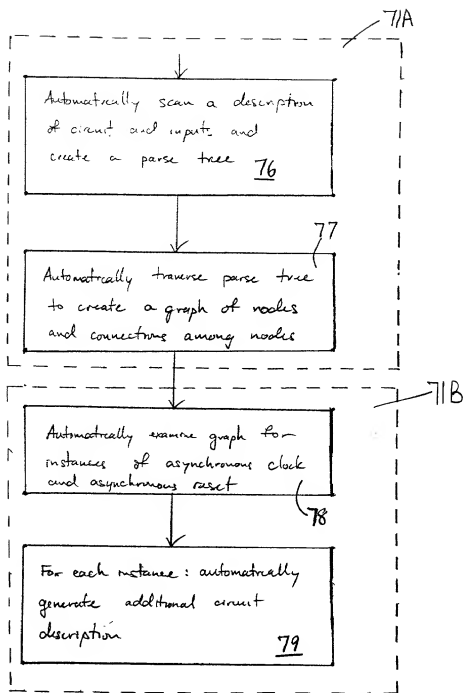 71A
Automatically scan a description
of circuit and inputs and
create a parse tree 76
77
Automatically traverse parse tree
to create a graph of nodes
and connections among nodes
71B
Automatically examine graph for
instances of asynchronous clock
and asynchronous reset
78
For each instance: automatically
generate additional circuit
description 79